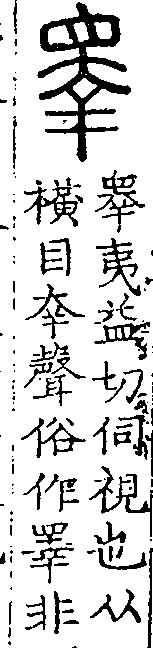 睪
睪夷益切伺視也从
橫目㚔聲俗作睪非